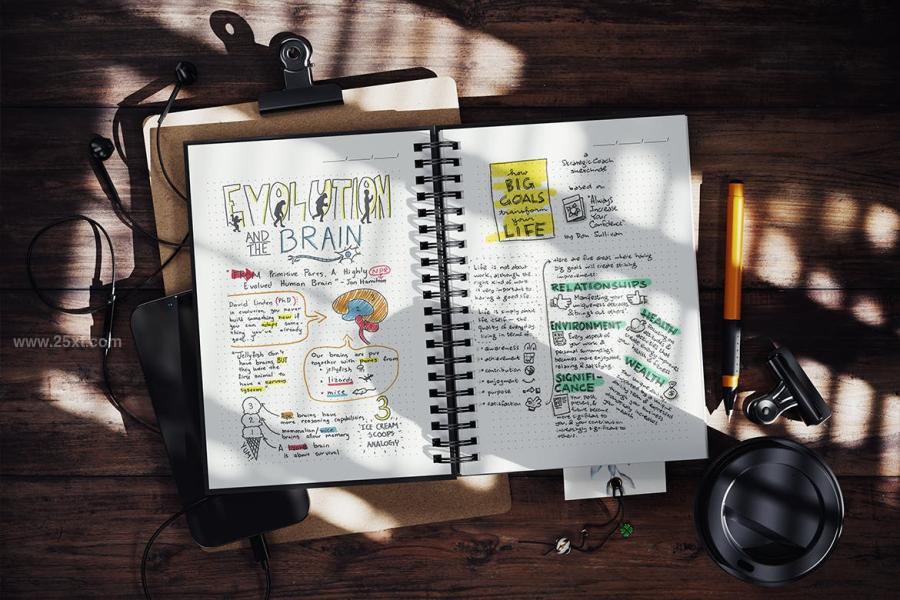 EVOLUTION
AND THE BRAIN
"FROM Primitive Parts, A Highly NPR
Evolved Human Brain" - Jon Hamilton
David Linden (PhD):
in evolution, you never
build something new if
you can adapt some-
thing you've already
got...
Jellyfish don't
have brains BUT
they were the
first animal to
have a nervous
system.
Our brains are put
together with parts from
jellyfish
lizards
mice
3
2
1
ape brains have
more reasoning capabilities
mammalian/mice
brains allow memory
A lizard brain
is about survival
3
"ICE CREAM
SCOOPS
ANALOGY"
how
BIG
GOALS
transform
your
LIFE
a
Strategic Coach
based on
"Always
Increase
Your
Confidence"
by Dan Sullivan
Life is not about
work, although the
right kind of work
is important to
having a good life.
Life is simply about
life itself - the
quality of everyday
living in several
awareness
achievement
contribution
enjoyment
purpose
satisfaction
There are five areas where having
big goals will create striking
improvements:
RELATIONSHIPS
Manifesting your
uniqueness attracts
& others' uniqueness
ENVIRONMENT
Every aspect of
your work &
personal surroundings
becomes more enjoyable
relaxing & satisfying
SIGNIFI-
CANCE
HEALTH
WEALTH
www.25xt.com